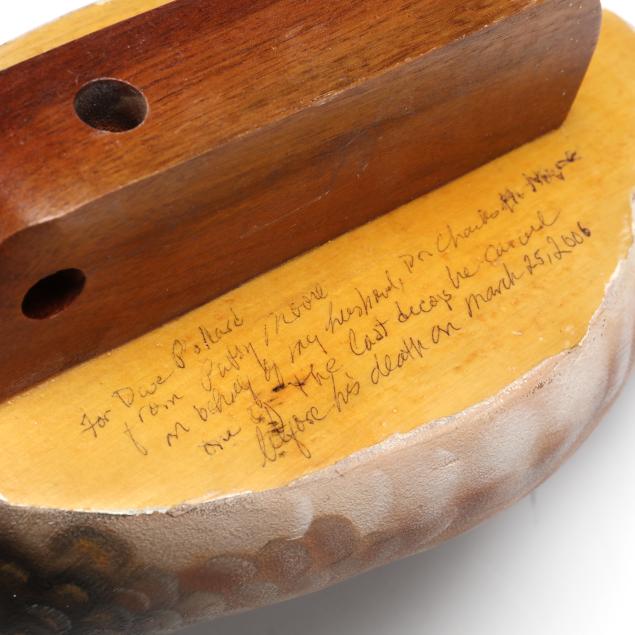 For Dave Pollard
from Patsy Moore
on behalf of my husband, Dr. Charles H. Moore
one of the last decoys he carved
before his death on March 25, 2006